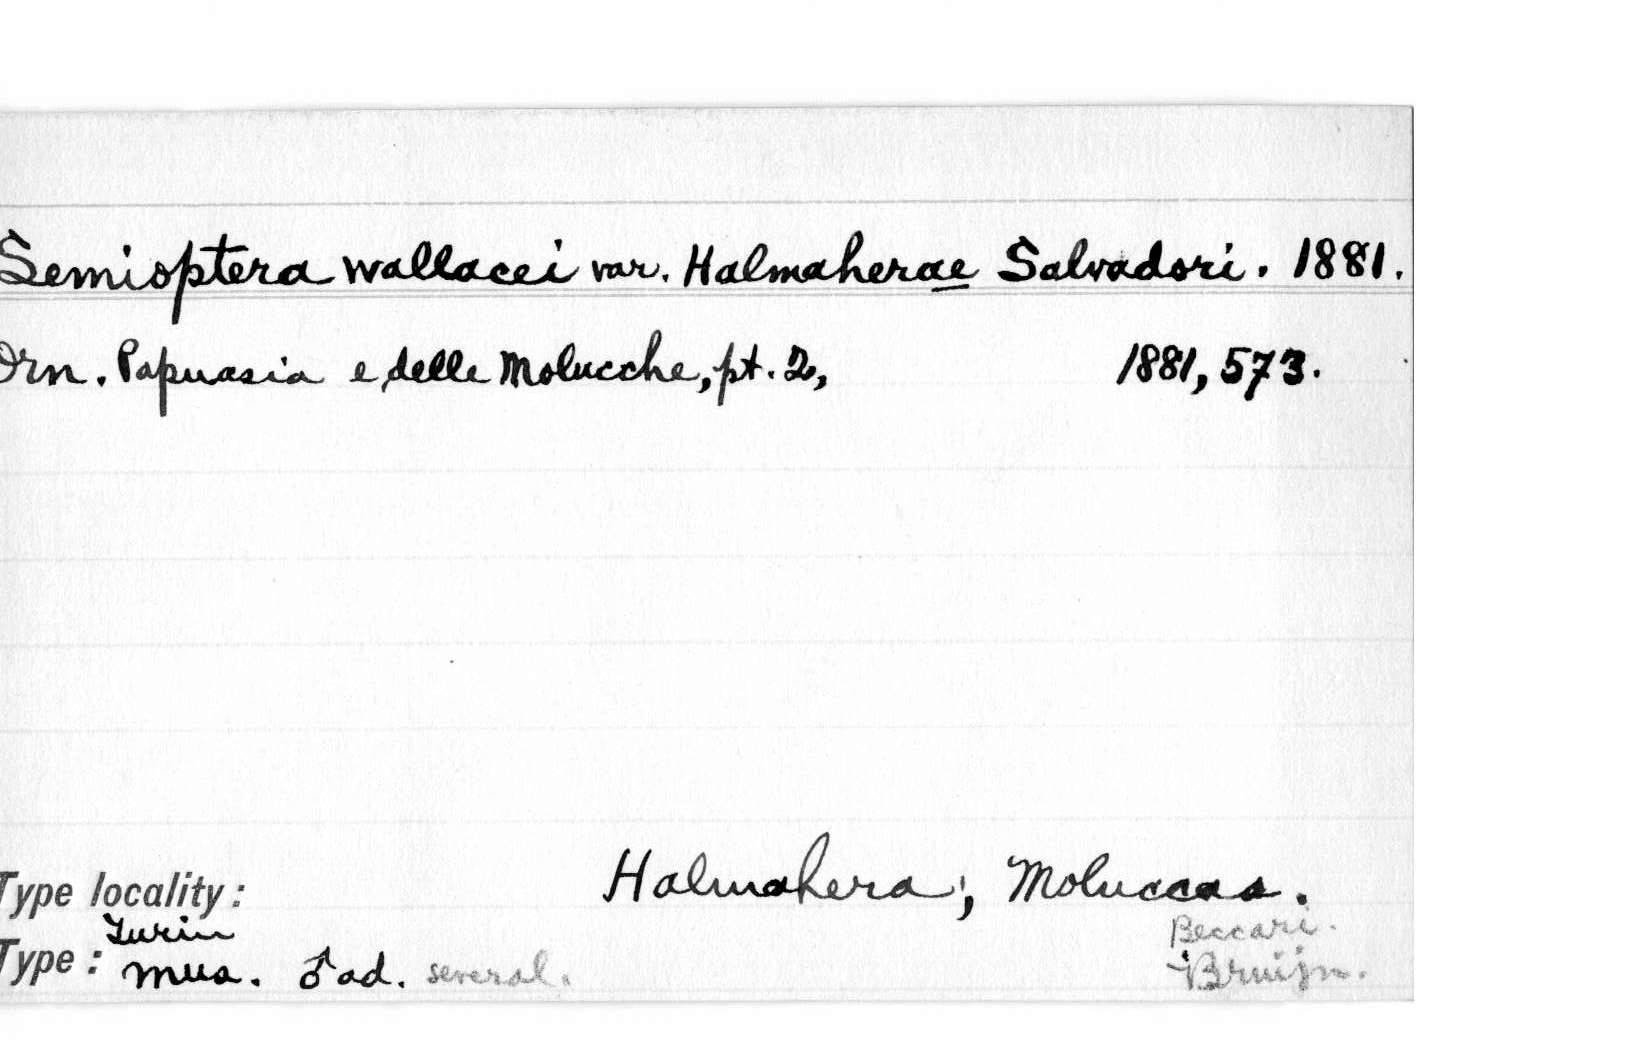 Semioptera wallacei var. Halmaherae Salvadori. 1881.
Orn. Papuasia e delle Molucche, pt. 2, 1881, 573.
Type locality: Halmahera, Moluccas.
Turin Beccari.
Type: Mus. ♂ ad. several. Bruijn.